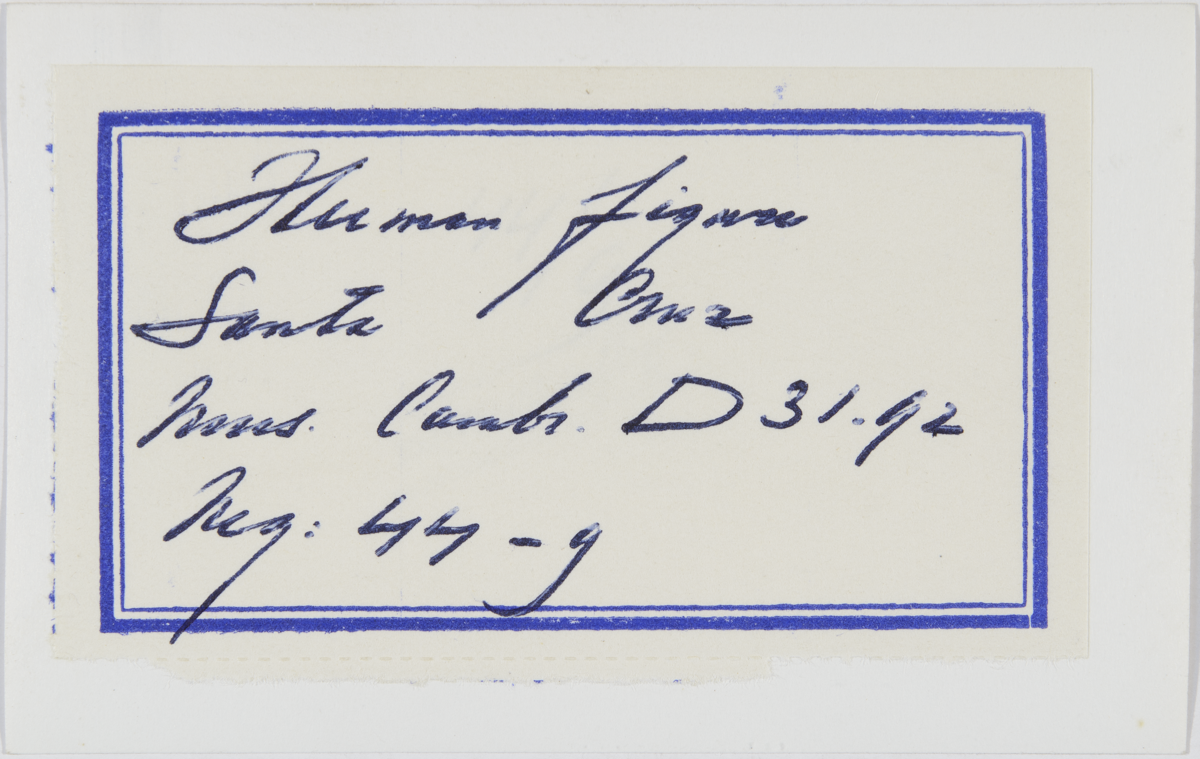 Human figure
Santa Cruz
Mus. Cambr. D 31.92
Neg: 44-9